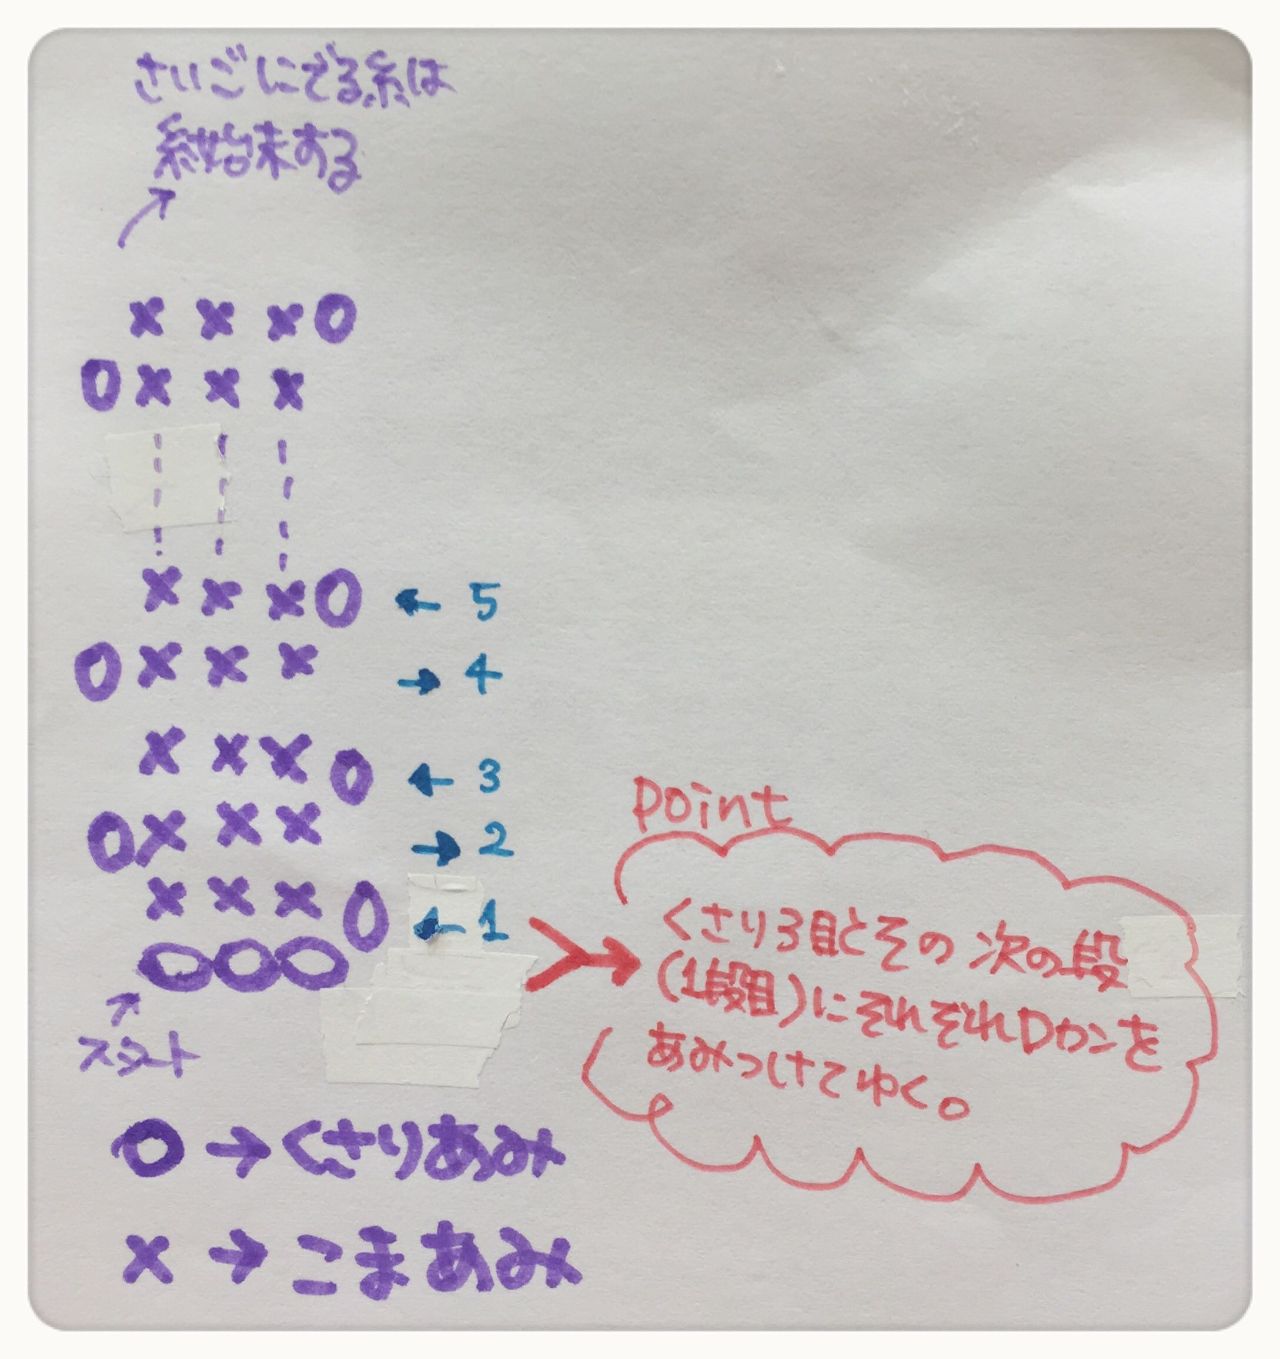 さいごにでる糸は
糸始末する
× × × 0
0 × × ×
× × × 0 ← 5
0 × × × → 4
× × × 0 ← 3
0 × × × → 2
× × × 0 ← 1
000
スタート
Point
くさり3目とその次の段
(1段目)にそれぞれDカンを
あみつけてゆく。
○ → くさりあみ
× → こまあみ